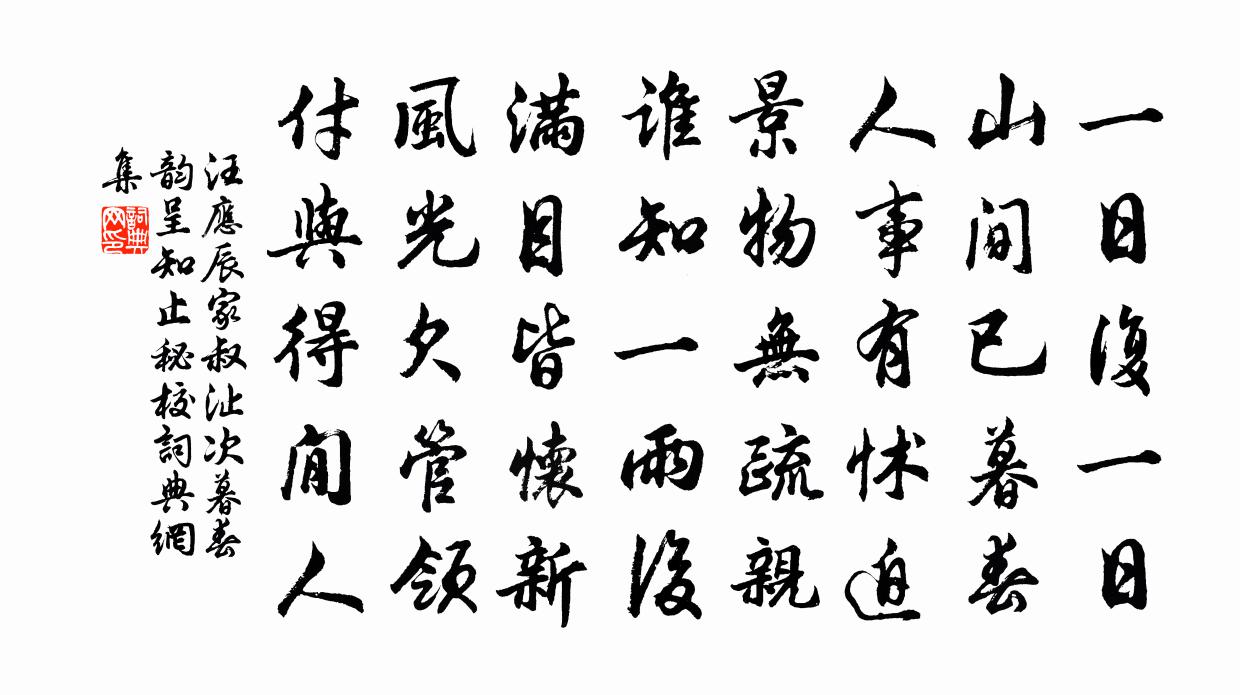 一日復一日
山間已暮春
人事有怵迫
景物無疏親
誰知一雨後
滿目皆懷新
風光欠管領
付與得閒人
汪應辰家叔沚次暮春
韵呈知止秘校詞典網
集
詞典網印